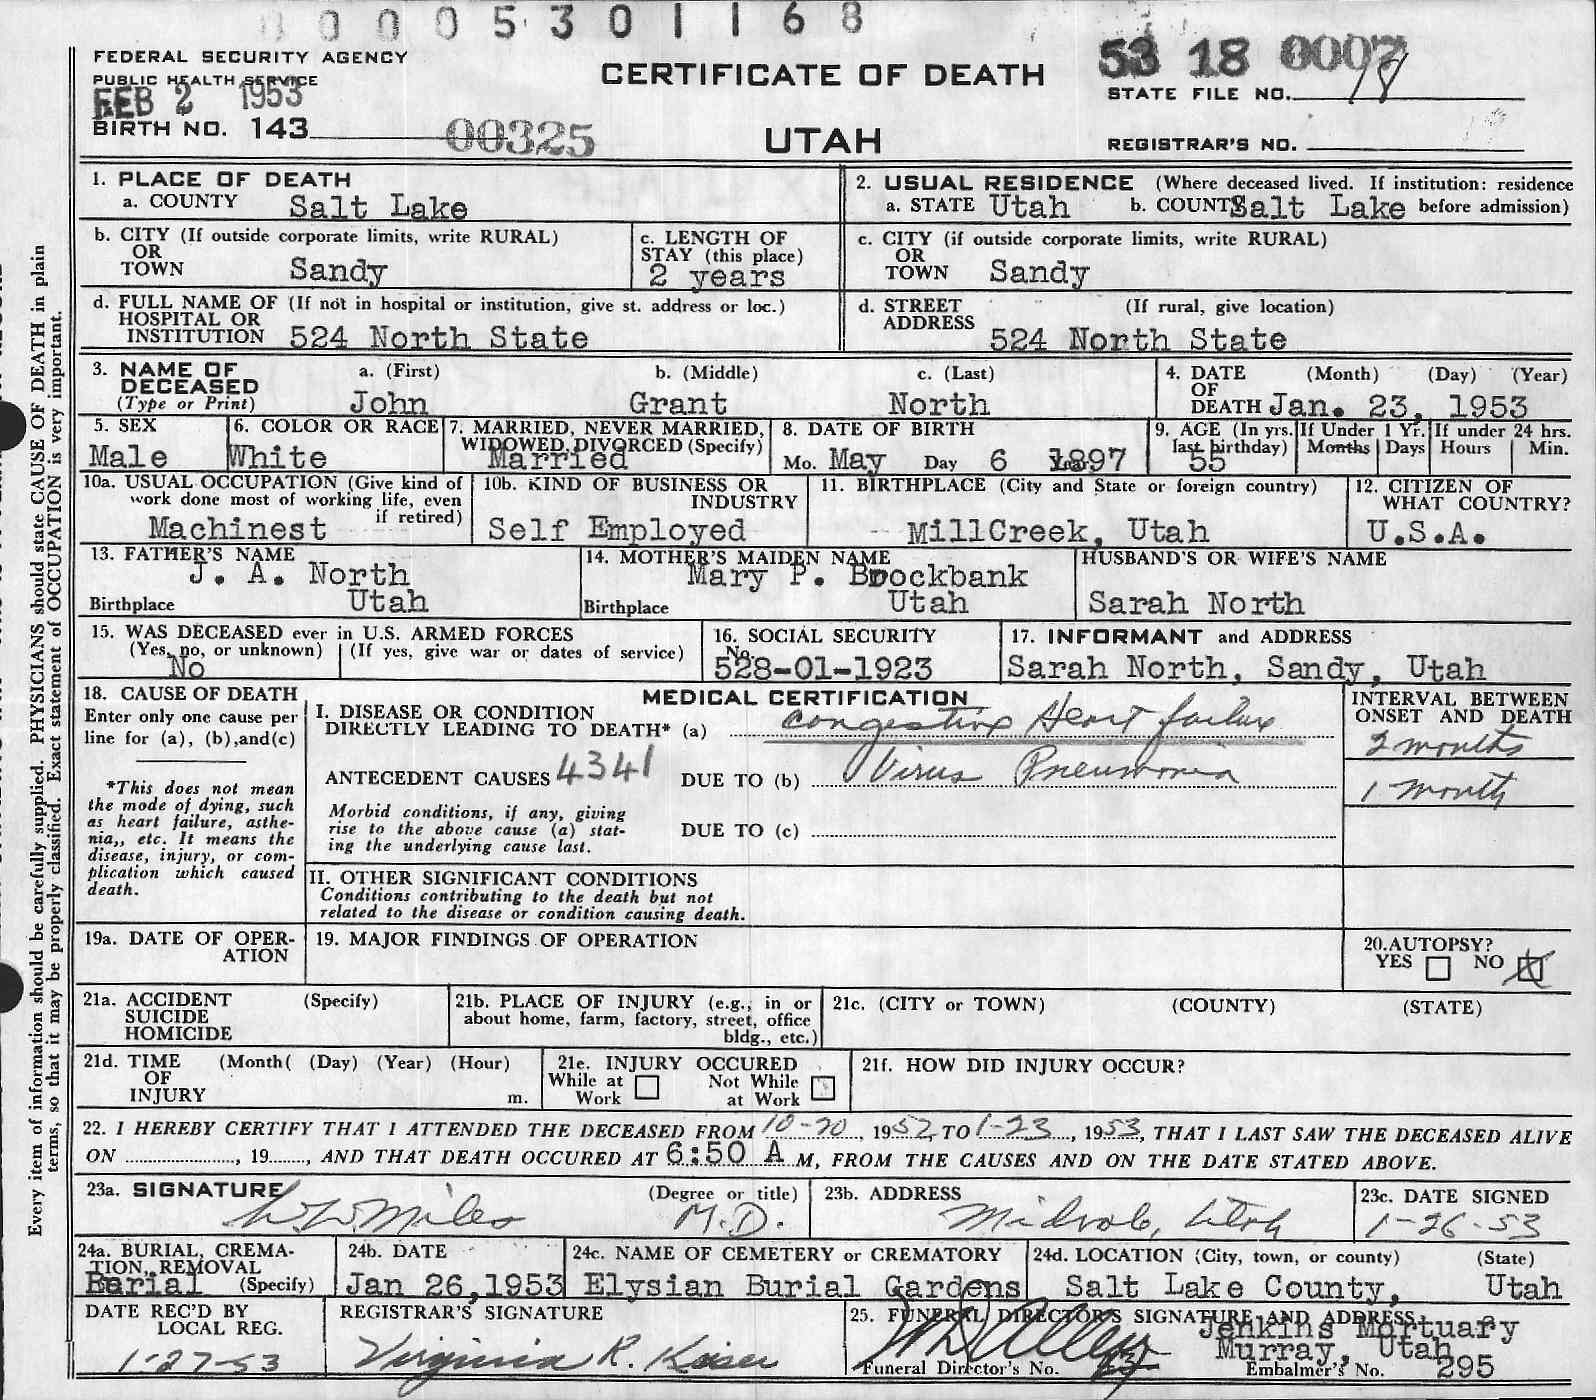 0 0 0 5 3 0 1 1 6 8
FEDERAL SECURITY AGENCY
PUBLIC HEALTH SERVICE
FEB 2 1953
BIRTH NO. 143
00325
CERTIFICATE OF DEATH
UTAH
53 18 0007
18
STATE FILE NO.
REGISTRAR'S NO.
1. PLACE OF DEATH
a. COUNTY Salt Lake
2. USUAL RESIDENCE (Where deceased lived. If institution: residence
a. STATE Utah b. COUNTY Salt Lake before admission)
b. CITY (If outside corporate limits, write RURAL)
OR
TOWN Sandy
c. LENGTH OF
STAY (this place)
2 years
c. CITY (if outside corporate limits, write RURAL)
OR
TOWN Sandy
d. FULL NAME OF (If not in hospital or institution, give st. address or loc.)
HOSPITAL OR
INSTITUTION 524 North State
d. STREET (If rural, give location)
ADDRESS
524 North State
3. NAME OF a. (First) b. (Middle) c. (Last)
DECEASED
(Type or Print) John Grant North
4. DATE (Month) (Day) (Year)
OF
DEATH Jan. 23, 1953
5. SEX
Male
6. COLOR OR RACE
White
7. MARRIED, NEVER MARRIED,
WIDOWED, DIVORCED (Specify)
Married
8. DATE OF BIRTH
Mo. May Day 6 Year 1897
9. AGE (In yrs.
last birthday)
55
If Under 1 Yr.
Months Days
If under 24 hrs.
Hours Min.
10a. USUAL OCCUPATION (Give kind of
work done most of working life, even
if retired)
Machinest
10b. KIND OF BUSINESS OR
INDUSTRY
Self Employed
11. BIRTHPLACE (City and State or foreign country)
MillCreek, Utah
12. CITIZEN OF
WHAT COUNTRY?
U.S.A.
13. FATHER'S NAME
J. A. North
Birthplace Utah
14. MOTHER'S MAIDEN NAME
Mary P. Brockbank
Birthplace Utah
HUSBAND'S OR WIFE'S NAME
Sarah North
15. WAS DECEASED ever in U.S. ARMED FORCES
(Yes, no, or unknown) (If yes, give war or dates of service)
No
16. SOCIAL SECURITY
No.
528-01-1923
17. INFORMANT and ADDRESS
Sarah North, Sandy, Utah
18. CAUSE OF DEATH
Enter only one cause per
line for (a), (b),and(c)
*This does not mean
the mode of dying, such
as heart failure, asthe-
nia,, etc. It means the
disease, injury, or com-
plication which caused
death.
MEDICAL CERTIFICATION
I. DISEASE OR CONDITION
DIRECTLY LEADING TO DEATH* (a) Congestive Heart failure
ANTECEDENT CAUSES 4341 DUE TO (b) Virus Pneumonia
Morbid conditions, if any, giving
rise to the above cause (a) stat-
ing the underlying cause last.
DUE TO (c)
II. OTHER SIGNIFICANT CONDITIONS
Conditions contributing to the death but not
related to the disease or condition causing death.
INTERVAL BETWEEN
ONSET AND DEATH
2 months
1 month
19a. DATE OF OPER-
ATION
19. MAJOR FINDINGS OF OPERATION
20.AUTOPSY?
YES NO X
21a. ACCIDENT (Specify)
SUICIDE
HOMICIDE
21b. PLACE OF INJURY (e.g., in or
about home, farm, factory, street, office
bldg., etc.)
21c. (CITY or TOWN) (COUNTY) (STATE)
21d. TIME (Month( (Day) (Year) (Hour)
OF
INJURY m.
21e. INJURY OCCURED
While at Not While
Work at Work
21f. HOW DID INJURY OCCUR?
22. I HEREBY CERTIFY THAT I ATTENDED THE DECEASED FROM 10-20, 1952, TO 1-23, 1953, THAT I LAST SAW THE DECEASED ALIVE
ON , 19 , AND THAT DEATH OCCURED AT 6:50 A M, FROM THE CAUSES AND ON THE DATE STATED ABOVE.
23a. SIGNATURE (Degree or title)
Miles M.D.
23b. ADDRESS
Midvale, Utah
23c. DATE SIGNED
1-26-53
24a. BURIAL, CREMA-
TION, REMOVAL
Burial (Specify)
24b. DATE
Jan 26,1953
24c. NAME OF CEMETERY or CREMATORY
Elysian Burial Gardens
24d. LOCATION (City, town, or county) (State)
Salt Lake County, Utah
DATE REC'D BY
LOCAL REG.
1-27-53
REGISTRAR'S SIGNATURE
Virginia R. Kaiser
25. FUNERAL DIRECTOR'S SIGNATURE AND ADDRESS
Jenkins Mortuary
Murray, Utah
Funeral Director's No.
Embalmer's No. 295
Every item of information should be carefully supplied. PHYSICIANS should state CAUSE OF DEATH in plain
terms, so that it may be properly classified. Exact statement of OCCUPATION is very important.